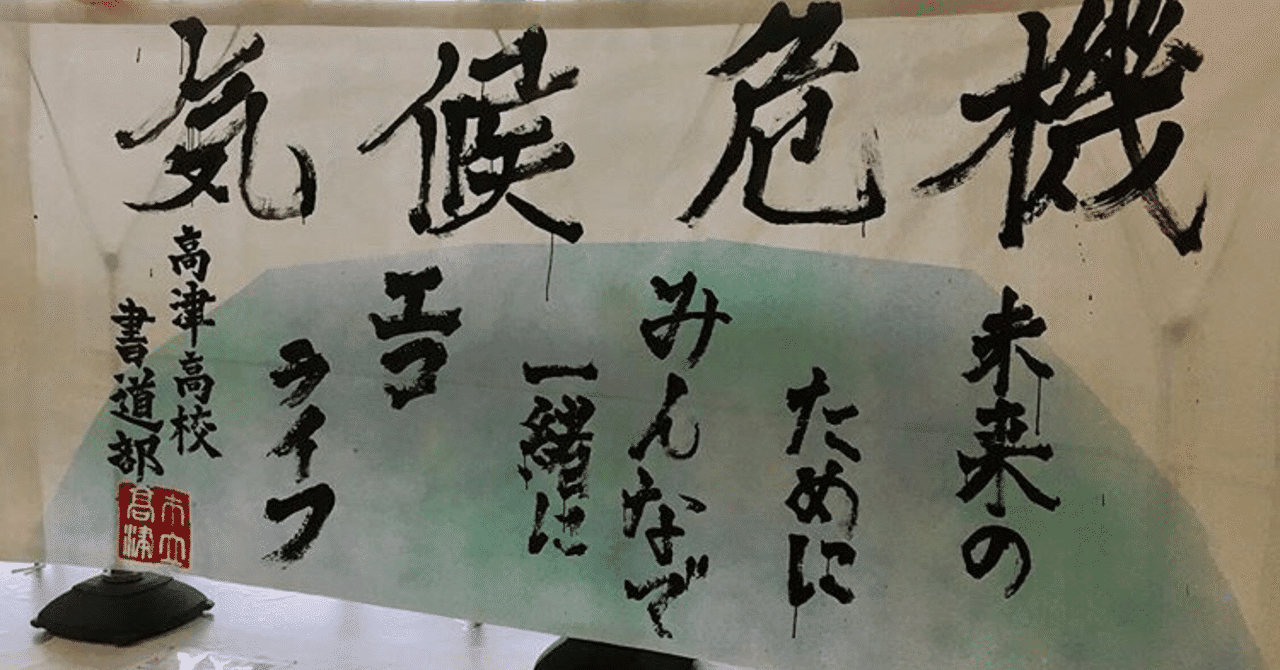 気候危機
未来の
ために
みんなで
一緒に
エコ
ライフ
高津高校
書道部
市立
高津